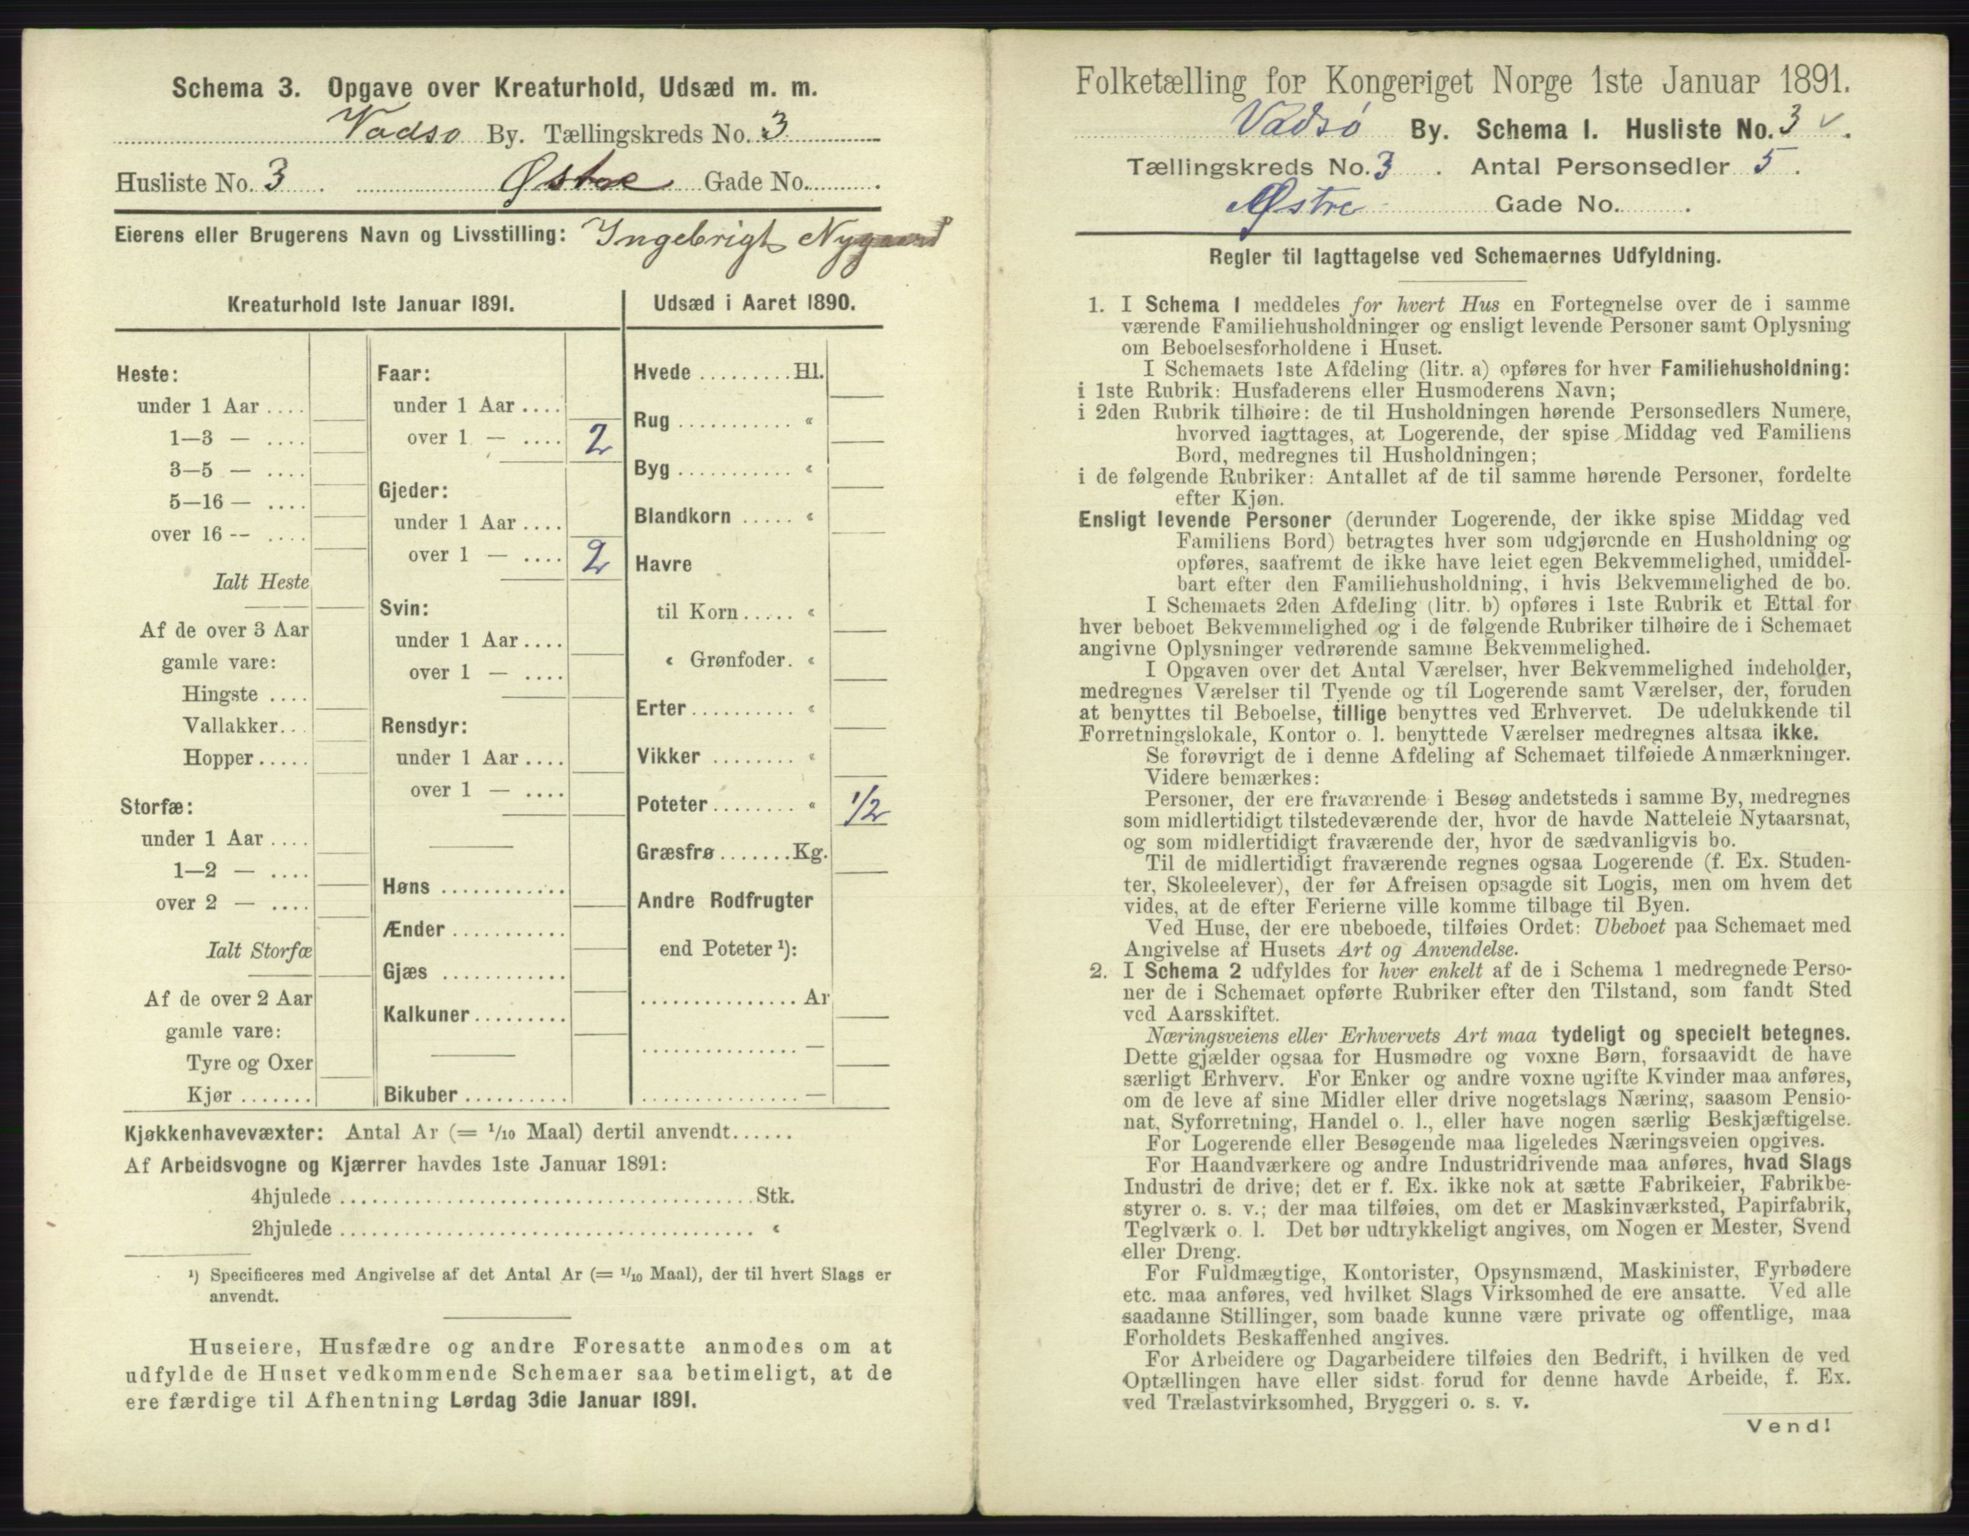 Schema 3. Opgave over Kreaturhold, Udsæd m. m.
Vadsø By. Tællingskreds No. 3
Husliste No. 3 Østre Gade No.
Eierens eller Brugerens Navn og Livsstilling: Ingebrigt Nygaard
Kreaturhold 1ste Januar 1891.
Heste:
under 1 Aar ....
1—3 — ....
3—5 — ....
5—16 — ....
over 16 -- ....
Ialt Heste
Af de over 3 Aar
gamle vare:
Hingste ....
Vallakker...
Hopper.....
Storfæ:
under 1 Aar ....
1—2 — ....
over 2 — ....
Ialt Storfæ
Af de over 2 Aar
gamle vare:
Tyre og Oxer
Kjør .......
Faar:
under 1 Aar ....
over 1 — .... 2
Gjeder:
under 1 Aar ....
over 1 — .... 2
Svin:
under 1 Aar ....
over 1 — ....
Rensdyr:
under 1 Aar ....
over 1 — ....
Høns ............
Ænder ...........
Gjæs ............
Kalkuner.........
Bikuber ..........
Udsæd i Aaret 1890.
Hvede .........Hl.
Rug ........... «
Byg ........... «
Blandkorn ..... «
Havre
til Korn..... «
« Grønfoder. «
Erter.......... «
Vikker ........ «
Poteter........ « 1/2
Græsfrø.......Kg.
Andre Rodfrugter
end Poteter ¹):
............... Ar
............... —
............... —
Kjøkkenhavevæxter: Antal Ar (= 1/10 Maal) dertil anvendt......
Af Arbeidsvogne og Kjærrer havdes 1ste Januar 1891:
4hjulede ........................................ Stk.
2hjulede ........................................ «
¹) Specificeres med Angivelse af det Antal Ar (= 1/10 Maal), der til hvert Slags er
anvendt.
Huseiere, Husfædre og andre Foresatte anmodes om at
udfylde de Huset vedkommende Schemaer saa betimeligt, at de
ere færdige til Afhentning Lørdag 3die Januar 1891.
Folketælling for Kongeriget Norge 1ste Januar 1891.
Vadsø By. Schema 1. Husliste No. 3 ✓.
Tællingskreds No. 3 . Antal Personsedler 5 .
Østre Gade No. .
Regler til Iagttagelse ved Schemaernes Udfyldning.
1. I Schema 1 meddeles for hvert Hus en Fortegnelse over de i samme
værende Familiehusholdninger og ensligt levende Personer samt Oplysning
om Beboelsesforholdene i Huset.
I Schemaets 1ste Afdeling (litr. a) opføres for hver Familiehusholdning:
i 1ste Rubrik: Husfaderens eller Husmoderens Navn;
i 2den Rubrik tilhøire: de til Husholdningen hørende Personsedlers Numere,
hvorved iagttages, at Logerende, der spise Middag ved Familiens
Bord, medregnes til Husholdningen;
i de følgende Rubriker: Antallet af de til samme hørende Personer, fordelte
efter Kjøn.
Ensligt levende Personer (derunder Logerende, der ikke spise Middag ved
Familiens Bord) betragtes hver som udgjørende en Husholdning og
opføres, saafremt de ikke have leiet egen Bekvemmelighed, umiddel-
bart efter den Familiehusholdning, i hvis Bekvemmelighed de bo.
I Schemaets 2den Afdeling (litr. b) opføres i 1ste Rubrik et Ettal for
hver beboet Bekvemmelighed og i de følgende Rubriker tilhøire de i Schemaet
angivne Oplysninger vedrørende samme Bekvemmelighed.
I Opgaven over det Antal Værelser, hver Bekvemmelighed indeholder,
medregnes Værelser til Tyende og til Logerende samt Værelser, der, foruden
at benyttes til Beboelse, tillige benyttes ved Erhvervet. De udelukkende til
Forretningslokale, Kontor o. l. benyttede Værelser medregnes altsaa ikke.
Se forøvrigt de i denne Afdeling af Schemaet tilføiede Anmærkninger.
Videre bemærkes:
Personer, der ere fraværende i Besøg andetsteds i samme By, medregnes
som midlertidigt tilstedeværende der, hvor de havde Natteleie Nytaarsnat,
og som midlertidigt fraværende der, hvor de sædvanligvis bo.
Til de midlertidigt fraværende regnes ogsaa Logerende (f. Ex. Studen-
ter, Skoleelever), der før Afreisen opsagde sit Logis, men om hvem det
vides, at de efter Ferierne ville komme tilbage til Byen.
Ved Huse, der ere ubeboede, tilføies Ordet: Ubeboet paa Schemaet med
Angivelse af Husets Art og Anvendelse.
2. I Schema 2 udfyldes for hver enkelt af de i Schema 1 medregnede Perso-
ner de i Schemaet opførte Rubriker efter den Tilstand, som fandt Sted
ved Aarsskiftet.
Næringsveiens eller Erhvervets Art maa tydeligt og specielt betegnes.
Dette gjælder ogsaa for Husmødre og voxne Børn, forsaavidt de have
særligt Erhverv. For Enker og andre voxne ugifte Kvinder maa anføres,
om de leve af sine Midler eller drive nogetslags Næring, saasom Pensio-
nat, Syforretning, Handel o. l., eller have nogen særlig Beskjæftigelse.
For Logerende eller Besøgende maa ligeledes Næringsveien opgives.
For Haandværkere og andre Industridrivende maa anføres, hvad Slags
Industri de drive; det er f. Ex. ikke nok at sætte Fabrikeier, Fabrikbe-
styrer o. s. v.; der maa tilføies, om det er Maskinværksted, Papirfabrik,
Teglværk o. l. Det bør udtrykkeligt angives, om Nogen er Mester, Svend
eller Dreng.
For Fuldmægtige, Kontorister, Opsynsmænd, Maskinister, Fyrbødere
etc. maa anføres, ved hvilket Slags Virksomhed de ere ansatte. Ved alle
saadanne Stillinger, som baade kunne være private og offentlige, maa
Forholdets Beskaffenhed angives.
For Arbeidere og Dagarbeidere tilføies den Bedrift, i hvilken de ved
Optællingen have eller sidst forud for denne havde Arbeide, f. Ex.
ved Trælastvirksomhed, Bryggeri o. s. v.
Vend!